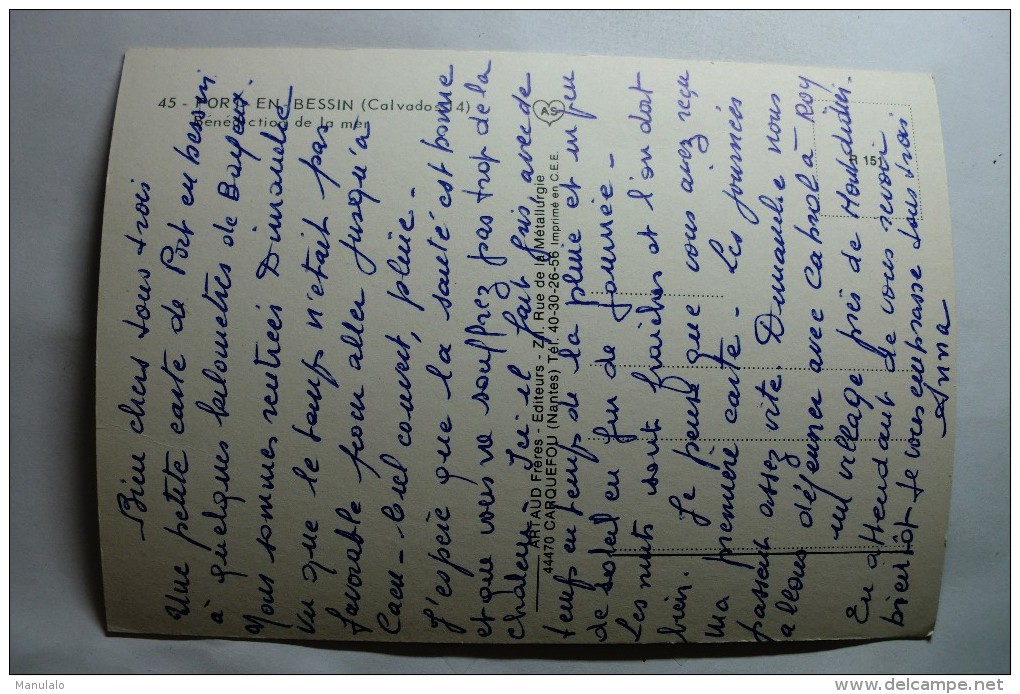 45 - PORT - EN - BESSIN (Calvados 14)
Bénédiction de la mer
Bien chers tous trois
Une petite carte de Port en bessin
à quelques kilomètres de Bayeux
Nous sommes rentrées Dimanche
Vu que le temps n'était pas
favorable pour aller jusqu'à
Caen - ciel couvert, pluie -
J'espère que la santé est bonne
et que vous ne souffrez pas trop de la
chaleur. Ici il fait gris avec de
temps en temps de la pluie et un peu
de soleil en fin de journée -
Les nuits sont fraîches et l'on dort
bien.
Je pense que vous avez reçu
ma première carte - Les journées
passent assez vite. Dimanche nous
allons déjeuner avec à Roy
un village près de
En attendant de vous revoir
bientôt je vous embrasse tous trois
Anna
ARTAUD Frères - Editeurs - Z.I. Rue de la Métallurgie
44470 CARQUEFOU (Nantes) Tél. 40-30-26-56 Imprimé en C.E.E.
151
Manulalo
delcampe.net